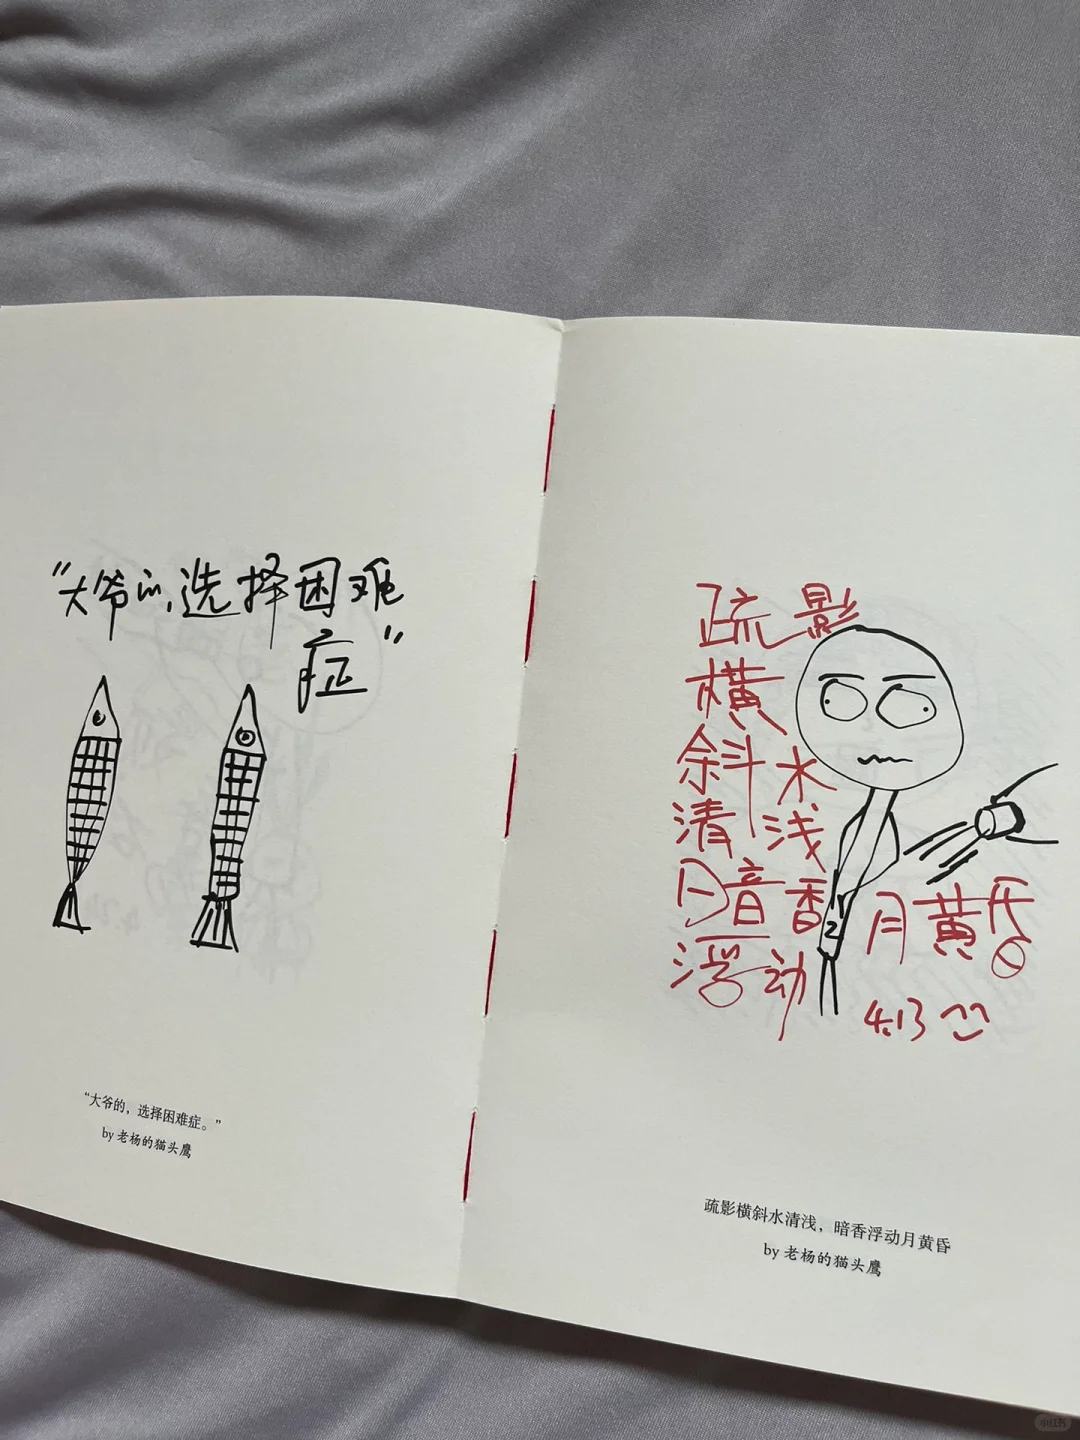 "大爷的,选择困难
症"
"大爷的，选择困难症。"
by 老杨的猫头鹰
疏影
横
斜水
清浅
暗香
浮动
月黄昏
4.13
疏影横斜水清浅，暗香浮动月黄昏
by 老杨的猫头鹰
小红书